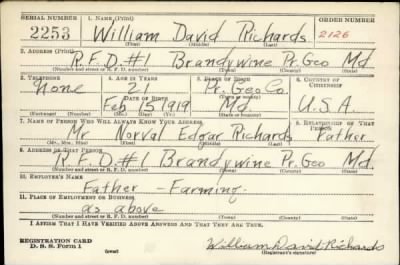 SERIAL NUMBER 1. NAME (Print) ORDER NUMBER
2253 William David Richards 2126
(First) (Middle) (Last)
2. ADDRESS (Print)
R.F.D.#1 Brandywine Pr. Geo Md.
(Number and street or R. F. D. number) (Town) (County) (State)
3. TELEPHONE 4. AGE IN YEARS 5. PLACE OF BIRTH 6. COUNTRY OF CITIZENSHIP
None 21 Pr. Geo Co.
DATE OF BIRTH
Feb 15 1919 Md U.S.A.
7. NAME OF PERSON WHO WILL ALWAYS KNOW YOUR ADDRESS 8. RELATIONSHIP OF THAT PERSON
Mr Norval Edgar Richards Father
(Mr., Mrs., Miss) (First) (Middle) (Last)
9. ADDRESS OF THAT PERSON
R.F.D.#1 Brandywine Pr. Geo Md.
(Number and street or R. F. D. number) (Town) (County) (State)
10. EMPLOYER'S NAME
Father - Farming.
11. PLACE OF EMPLOYMENT OR BUSINESS
as above
(Number and street or R. F. D. number) (Town) (County) (State)
I AFFIRM THAT I HAVE VERIFIED ABOVE ANSWERS AND THAT THEY ARE TRUE.
REGISTRATION CARD
D. S. S. Form 1 (over) William David Richards
(Registrant's signature)